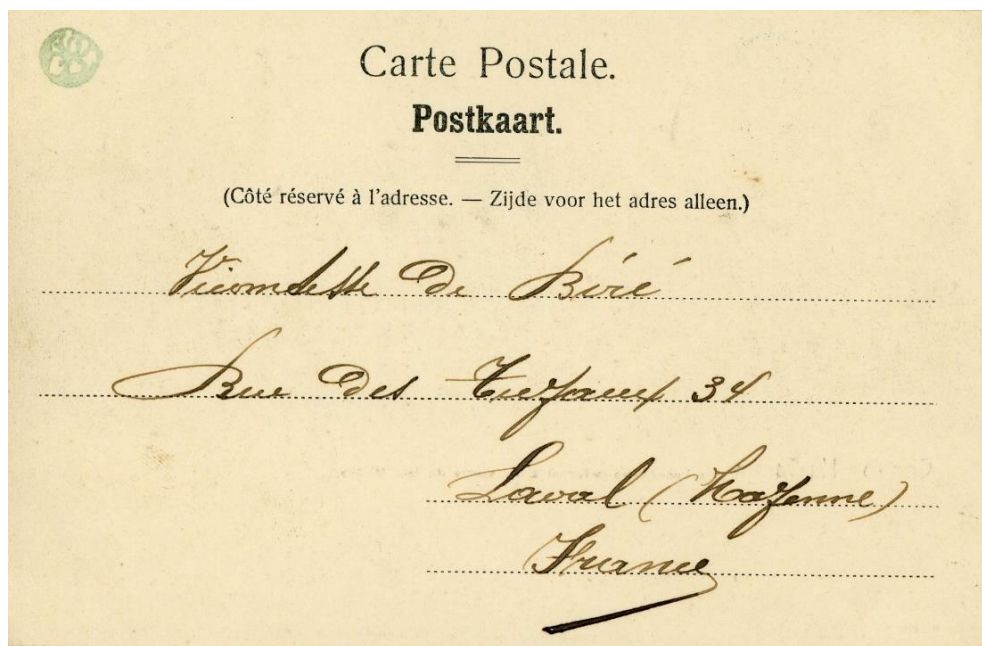 Carte Postale.
Postkaart.
(Côté réservé à l'adresse. — Zijde voor het adres alleen.)
Vicomtesse De Biré
Rue des 34
Laval (Mayenne)
France